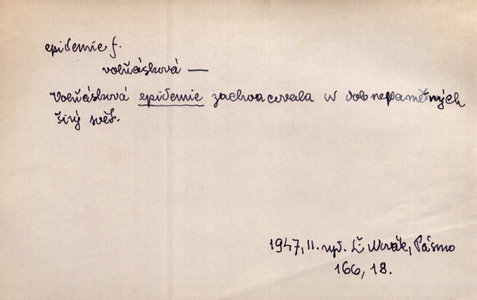 epidemie f.
volňásková —
Volňásková epidemie zachvacovala w dob nepamětných
širý svět.
1947, II. vyd. L. Novák, Pásmo
166, 18.